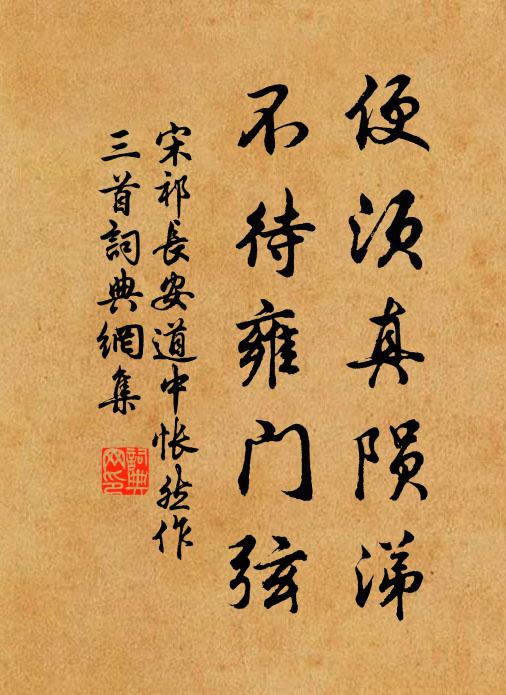 便须真陨涕
不待雍门弦
宋祁長安道中怅然作
三首詞典網集
詞典網印